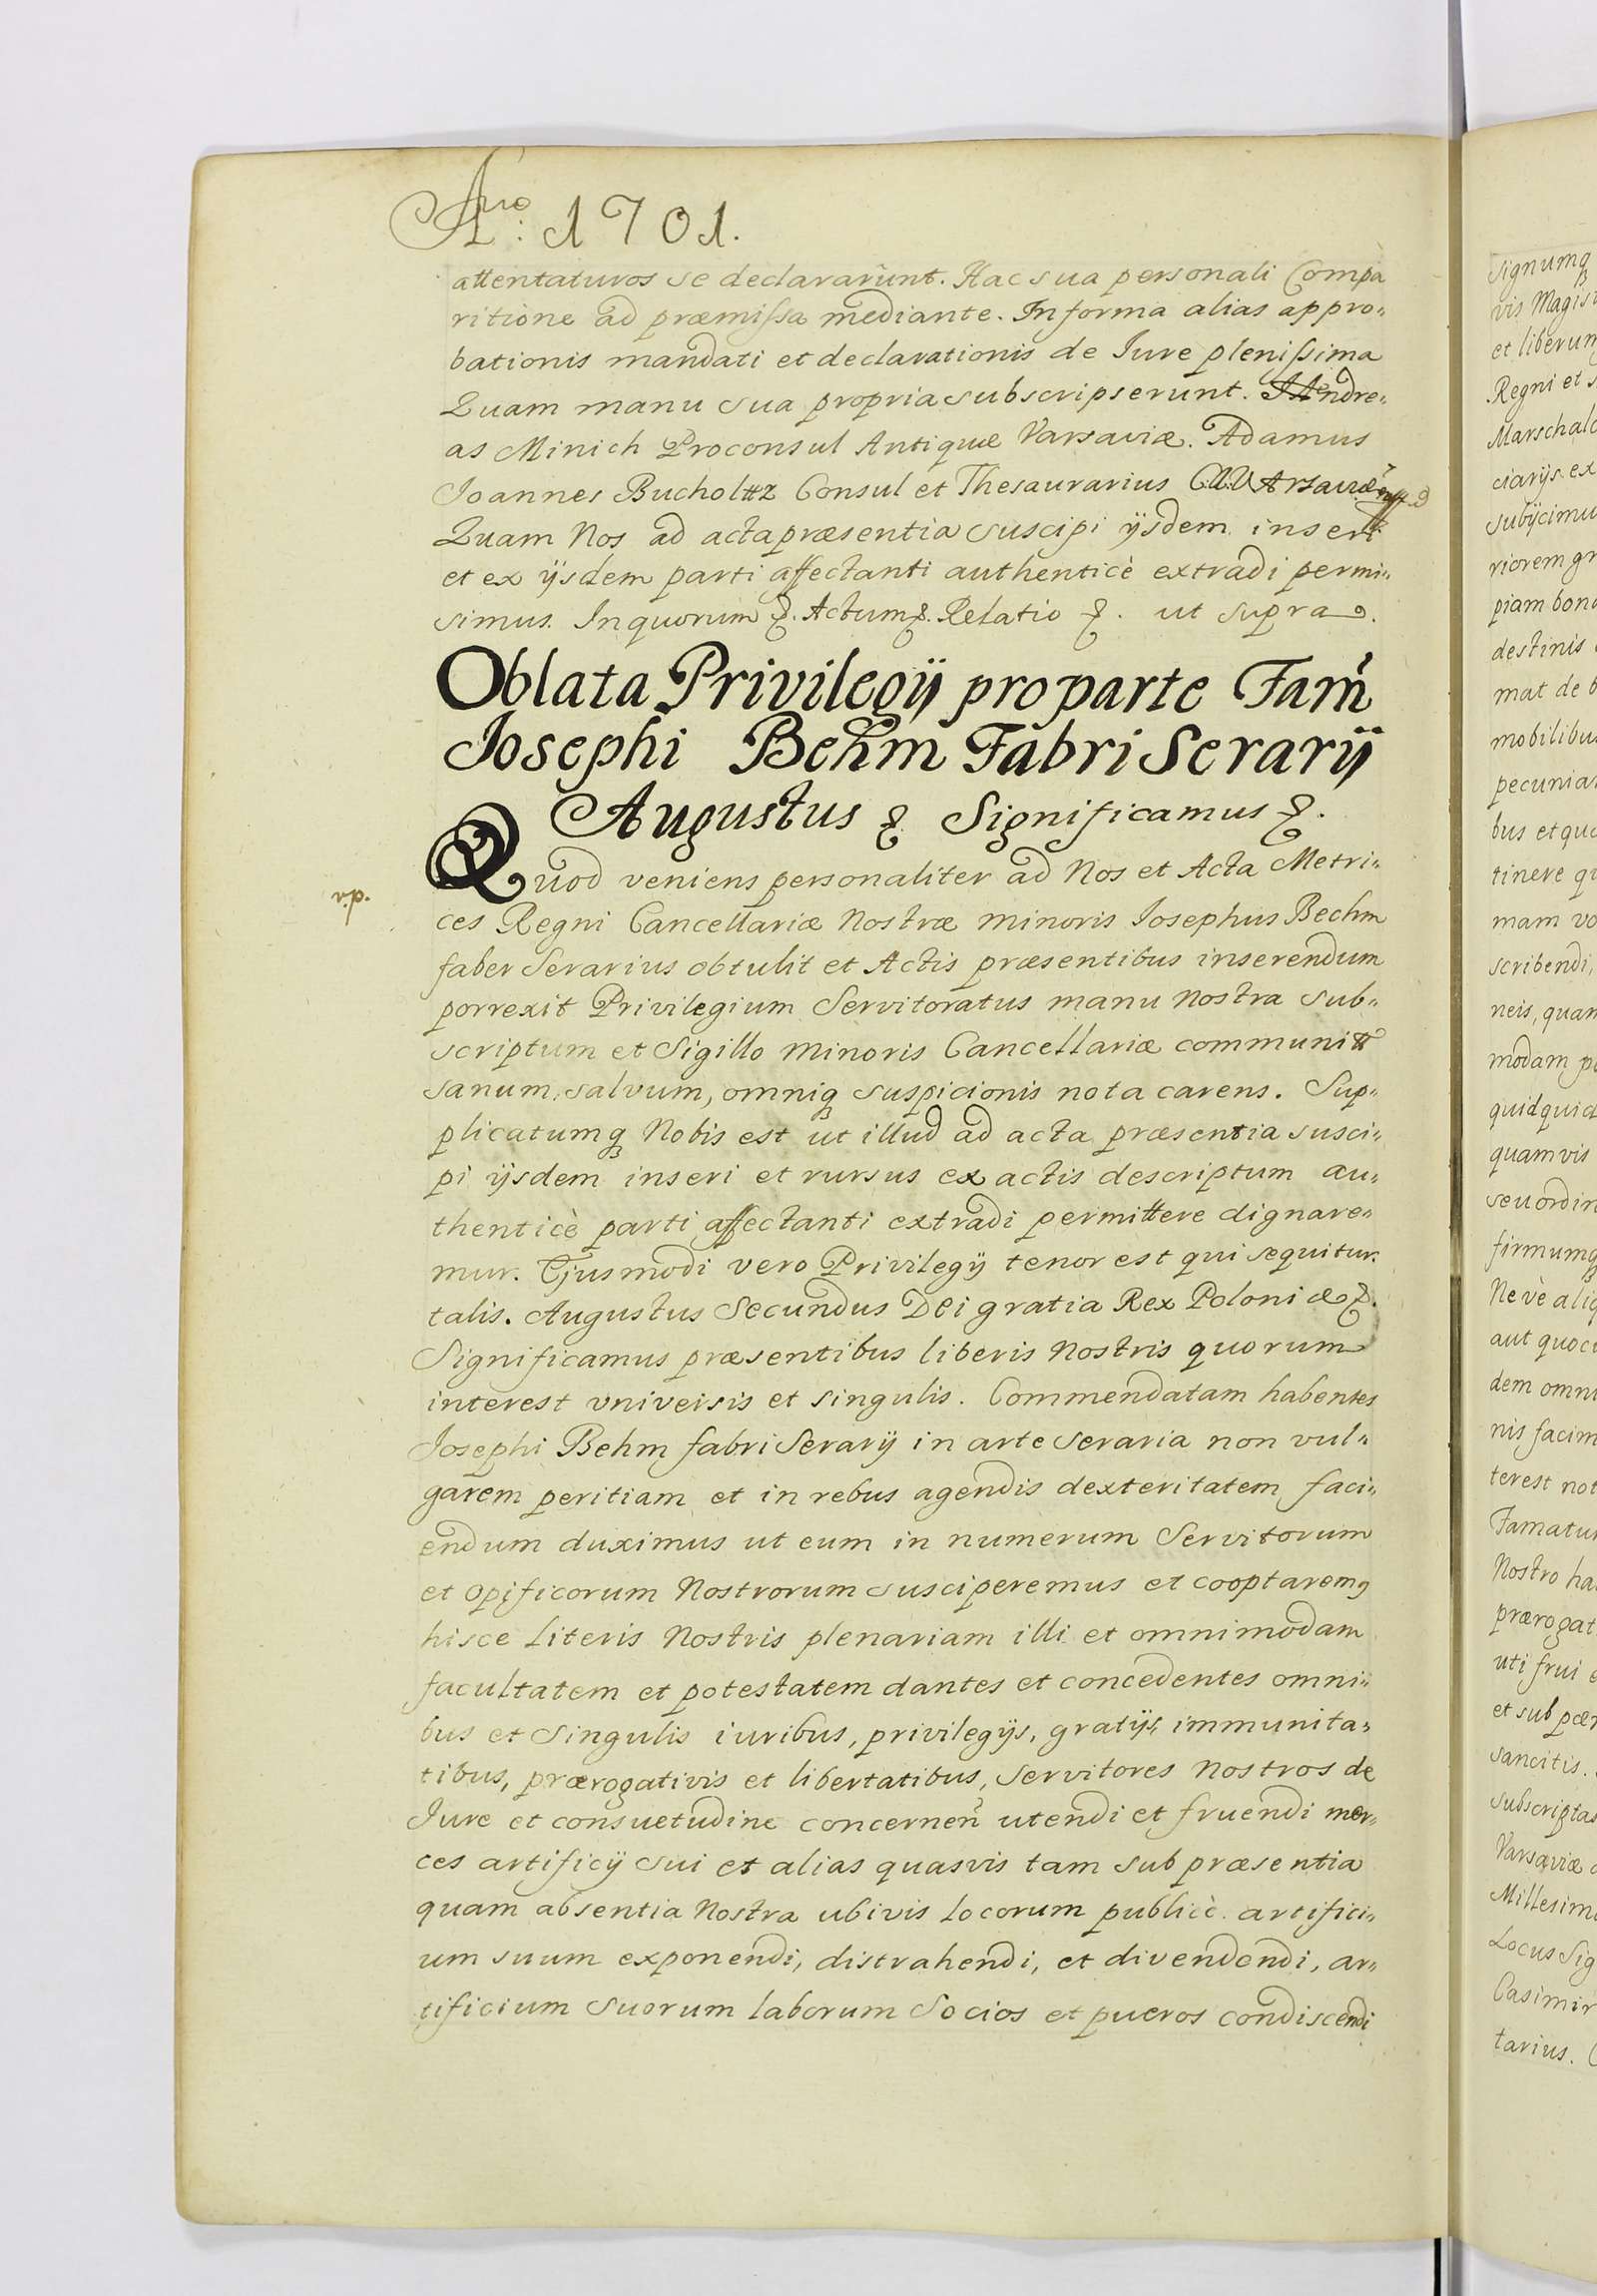 Ano: 1701.
attentaturos se declararunt. Hac sua personali Compa
ritione ad præmissa mediante. In forma alias appro„
bationis mandati et declarationis de Iure plenissima
Quam manu sua propria subscripserunt. Andre„
as Minich Proconsul Antiquæ Varsaviæ. Adamus
Joannes Bucholttz Consul et Thesaurarius
Quam Nos ad acta præsentia suscipi ijsdem inseri
et ex ijsdem parti affectanti authenticè extradi permi„
simus. In quorum &. Actum &. Relatio &. ut supra.
Oblata Privilegij pro parte Fam
Josephi Behm Fabri Serarij
Augustus & Significamus &.
Quod veniens personaliter ad Nos et Acta Metri„
ces Regni Cancellariæ Nostræ minoris Iosephus Bechm
faber Serarius obtulit et Actis præsentibus inserendum
porrexit Privilegium Servitoratus manu Nostra Sub„
scriptum et Sigillo minoris Cancellariæ communitt
sanum, salvum, omniq suspicionis nota carens. Sup„
plicatumq Nobis est ut illud ad acta præsentia susci„
pi ijsdem inseri et rursus ex actis descriptum au„
thenticè parti affectanti extradi permittere dignare„
mur. Ejusmodi vero Privilegij tenor est qui sequitur
talis. Augustus Secundus Dei gratia Rex Poloniæ &.
Significamus præsentibus liberis Nostris quorum
interest vniversis et singulis. Commendatam habentes
Josephi Behm fabri Serarij in arte seraria non vul„
garem peritiam et in rebus agendis dexteritatem faci„
endum duximus ut eum in numerum Servitorum
et opificorum Nostrorum susciperemus et cooptarem9
hisce Literis Nostris plenariam illi et omnimodam
facultatem et potestatem dantes et concedentes omni„
bus et Singulis iuribus, privilegijs, gratijs, immunita„
tibus, prærogativis et libertatibus, Servitores Nostros de
Iure et consuetudine concernen utendi et fruendi mer„
ces artificij sui et alias quasvis tam sub præsentia
quam absentia Nostra ubivis Locorum publicè artifici„
um suum exponendi, distrahendi, et divendendi, ar„
tificium suorum laborum Socios et pueros condiscendi
signumq
vis Magis
et liberum
Regni et
Marschalc
ciarijs ex
subijcimu
riorem gr
piam bon
destinis
mat de b
mobilibu
pecunia
bus et qu
tinere q
mam vo
scribendi,
neis, quam
modam p
quidquid
quamvis
seu ordin
firmumq
Nevè aliq
aut quoc
dem omn
nis facim
terest not
Famatu
Nostro ha
prærogat
uti frui
et sub pœn
sancitis.
subscriptas
Varsaviæ
Millesim
Locus Sig
Casimir
tarius.